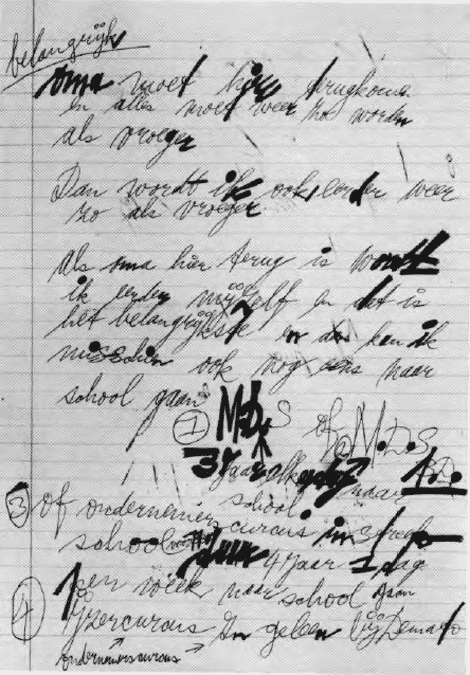 belangrijk
oma moet hier terugkomen
en alles moet weer zo worden
als vroeger
Dan wordt ik ook eerder weer
zo als vroeger
Als oma hier terug is wordt
ik eerder mijzelf en dat is
het belangrijkste en dan kan ik
misschien ook nog eens naar
school gaan
① M.D.S of ② M.D.S
3 jaar elke naar
school
③ of ondernemers cursus in
school 4 jaar 1 dag
per week naar school gaan
④ ijzercursus In geleen bij Demarto
ondernemerscursus